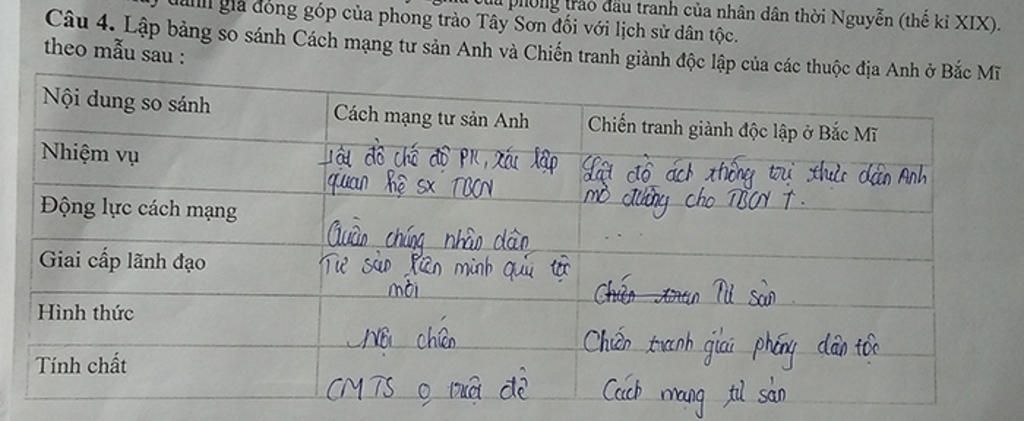 đánh giá đóng góp của phong trào Tây Sơn đối với lịch sử dân tộc.
phong trào đấu tranh của nhân dân thời Nguyễn (thế kỉ XIX).
Câu 4. Lập bảng so sánh Cách mạng tư sản Anh và Chiến tranh giành độc lập của các thuộc địa Anh ở Bắc Mĩ
theo mẫu sau :
Nội dung so sánh
Cách mạng tư sản Anh
Chiến tranh giành độc lập ở Bắc Mĩ
Nhiệm vụ
đổ chế độ PK, xác lập
quan hệ sx TBCN
Lật đổ ách thống trị thực dân Anh
mở đường cho TBCN ↑.
Động lực cách mạng
Quần chúng nhân dân
. . .
Giai cấp lãnh đạo
Tư sản liên minh quí tộc
mới
Tư sản
Hình thức
Nội chiến
Chiến tranh giải phóng dân tộc
Tính chất
CMTS triệt để
Cách mạng tư sản